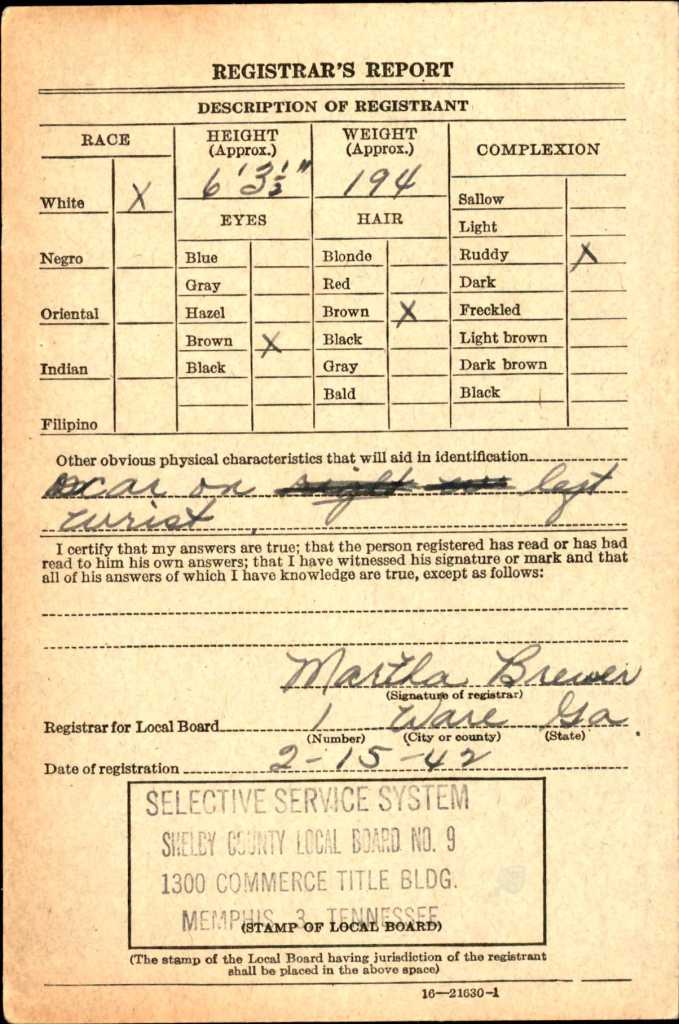 REGISTRAR'S REPORT
DESCRIPTION OF REGISTRANT
RACE
HEIGHT
(Approx.)
WEIGHT
(Approx.)
COMPLEXION
6' 3½"
194
White X
EYES
HAIR
Sallow
Light
Negro
Blue
Blonde
Ruddy X
Gray
Red
Dark
Oriental
Hazel
Brown X
Freckled
Brown X
Black
Light brown
Indian
Black
Gray
Dark brown
Bald
Black
Filipino
Other obvious physical characteristics that will aid in identification
scar on right left
wrist.
I certify that my answers are true; that the person registered has read or has had
read to him his own answers; that I have witnessed his signature or mark and that
all of his answers of which I have knowledge are true, except as follows:
Martha Brewer
(Signature of registrar)
Registrar for Local Board 1 Ware Ga.
(Number) (City or county) (State)
Date of registration 2-15-42
SELECTIVE SERVICE SYSTEM
SHELBY COUNTY LOCAL BOARD NO. 9
1300 COMMERCE TITLE BLDG.
MEMPHIS 3, TENNESSEE
(STAMP OF LOCAL BOARD)
(The stamp of the Local Board having jurisdiction of the registrant
shall be placed in the above space)
16—21630-1